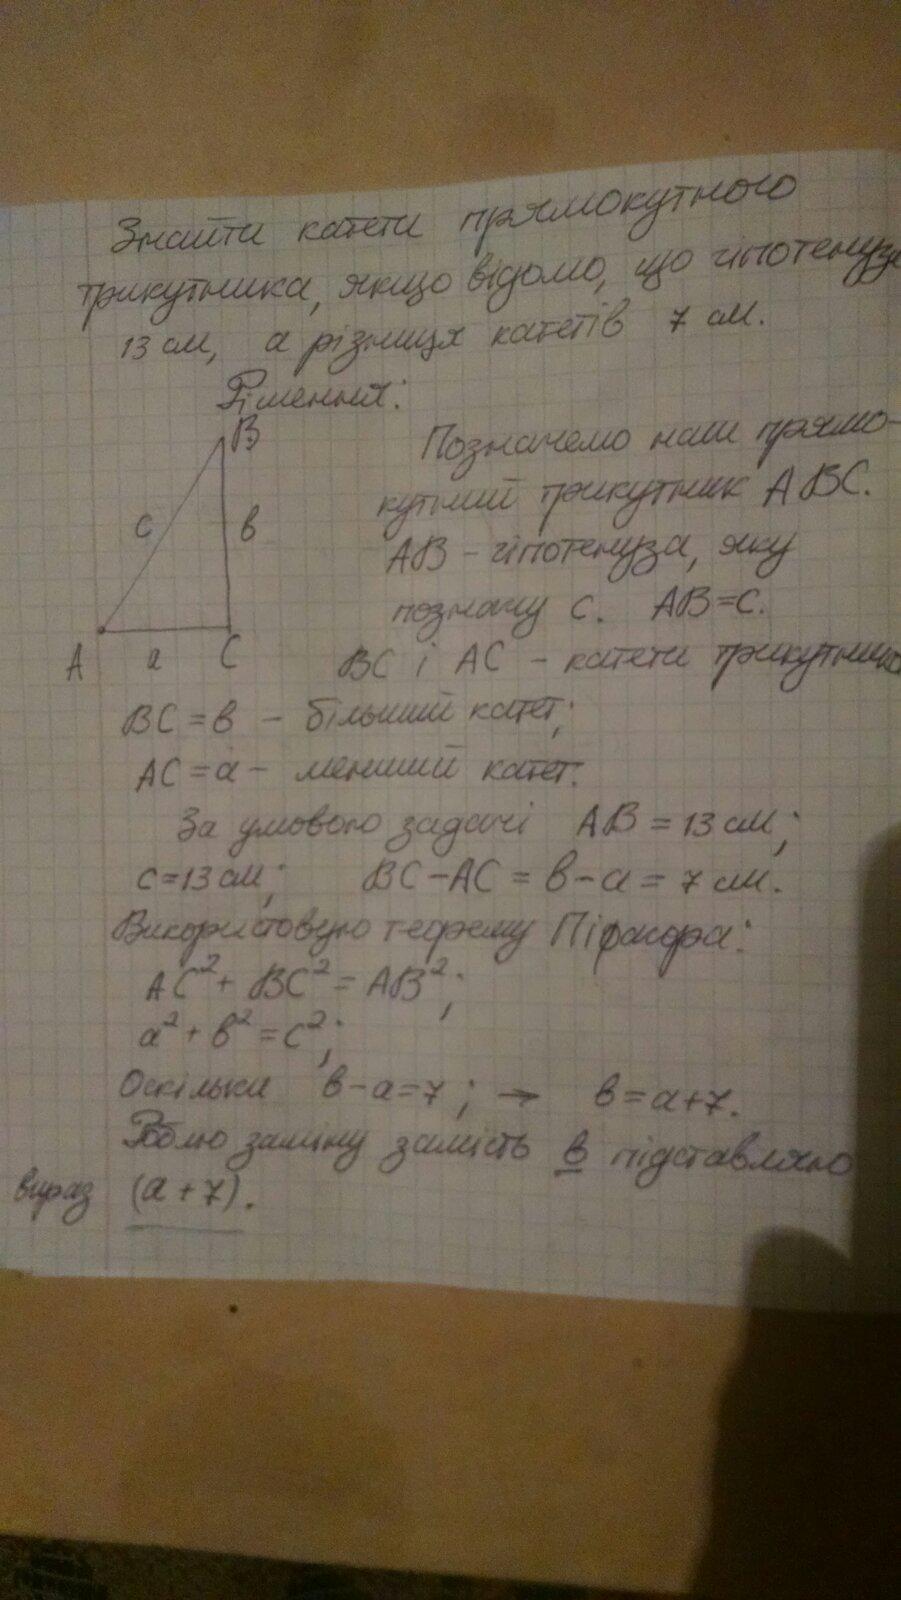 Знайти катети прямокутного
трикутника, якщо відомо, що гіпотенуза
13 см, а різниця катетів 7 см.
Рішення:
B
Позначемо наш прямо-
кутний трикутник ABC.
c
в
AB - гіпотенуза, яку
позначу c. AB=c.
A a C
BC і AC - катети трикутника
BC = в - більший катет;
AC = a - менший катет.
За умовою задачі AB = 13 см;
c=13 см; BC-AC = в-a = 7 см.
Використовую теорему Піфагора:
AC² + BC² = AB²;
a² + в² = c²;
Оскільки в-a=7; → в=a+7.
Роблю заміну замість в підставляю
вираз (a+7).